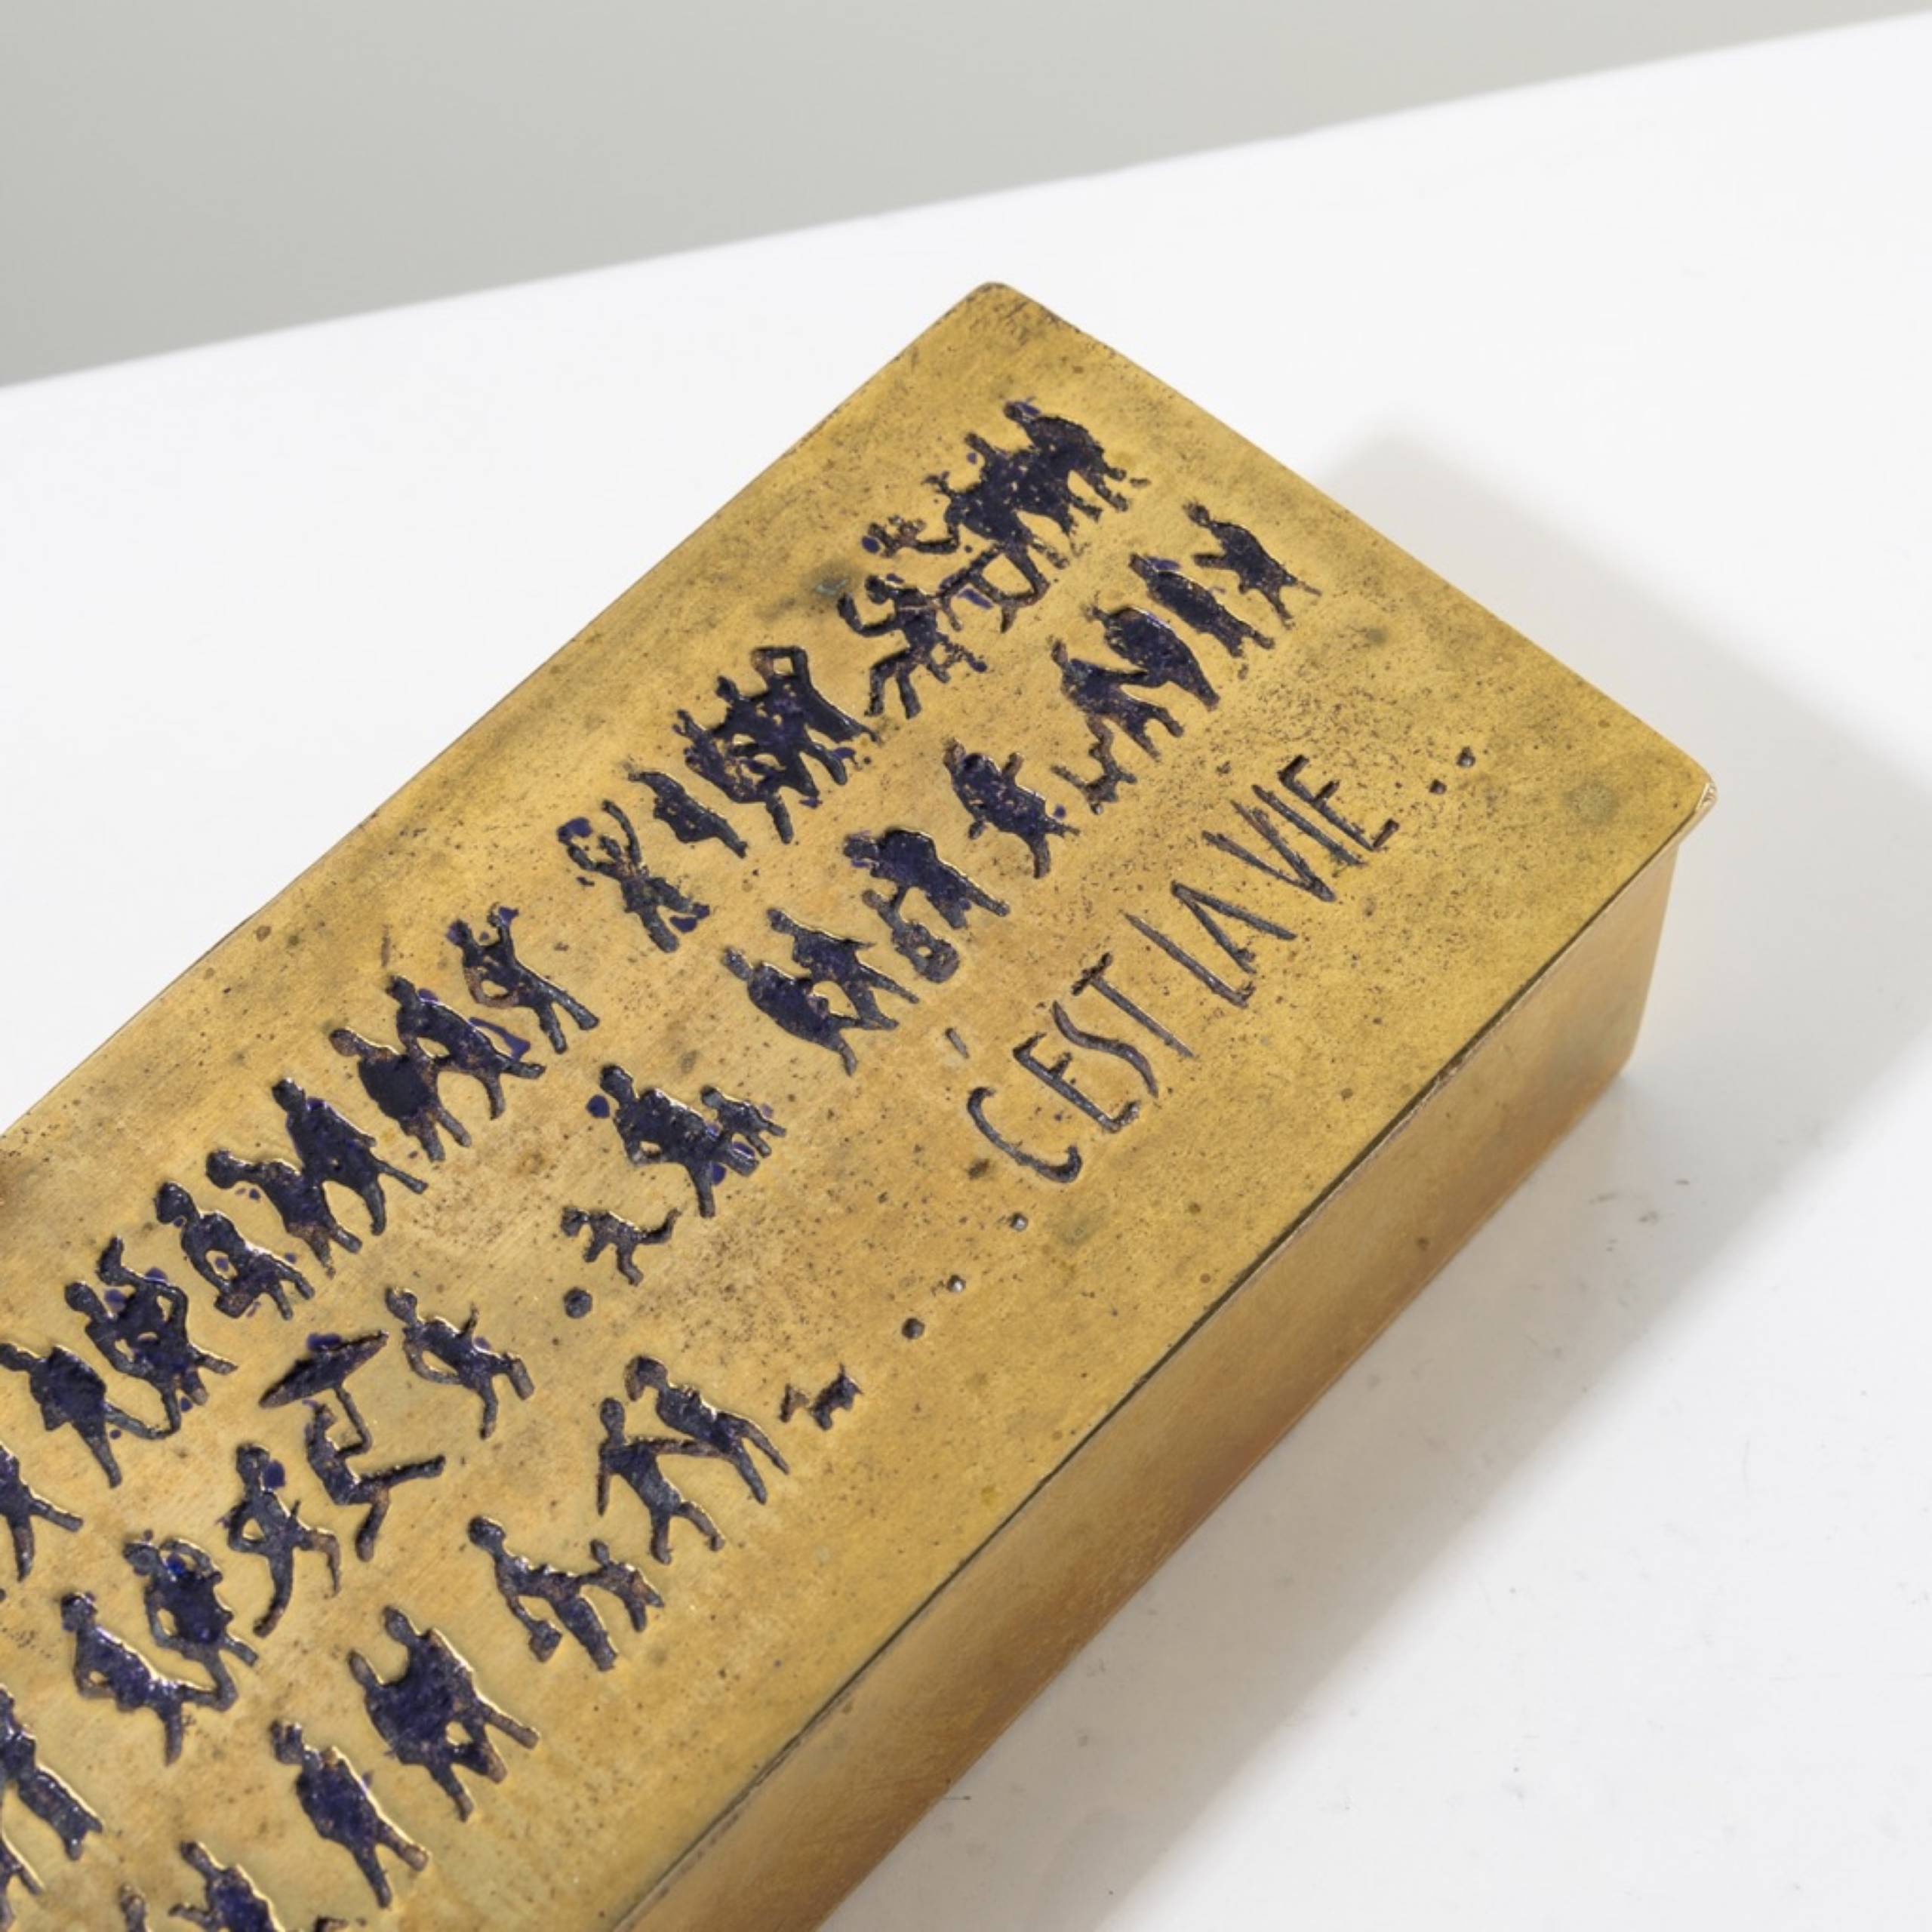 ... C'EST LA VIE ..